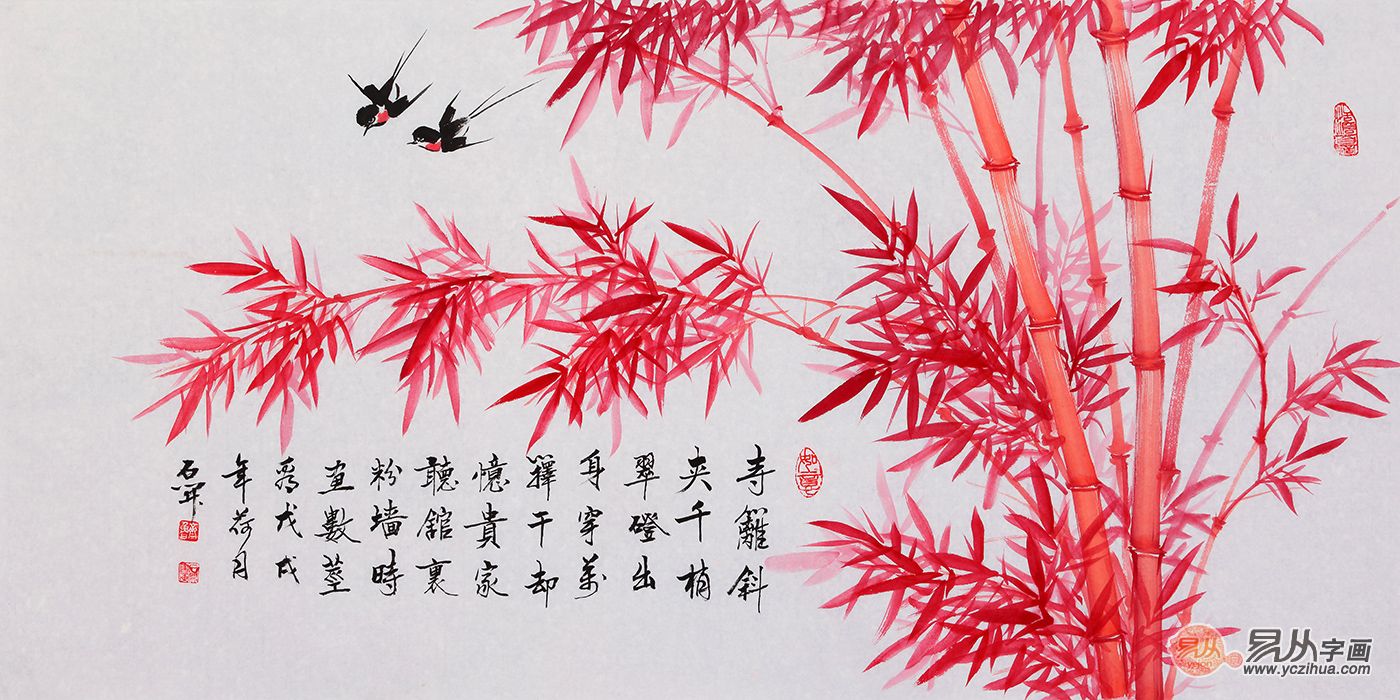 寺籬斜
夾千梢
翠磴出
身穿萬
籜干却
憶貴家
聽舘裏
粉墙時
畫數莖
髙戊戌
年荷月
石开
易从字画
www.yczihua.com